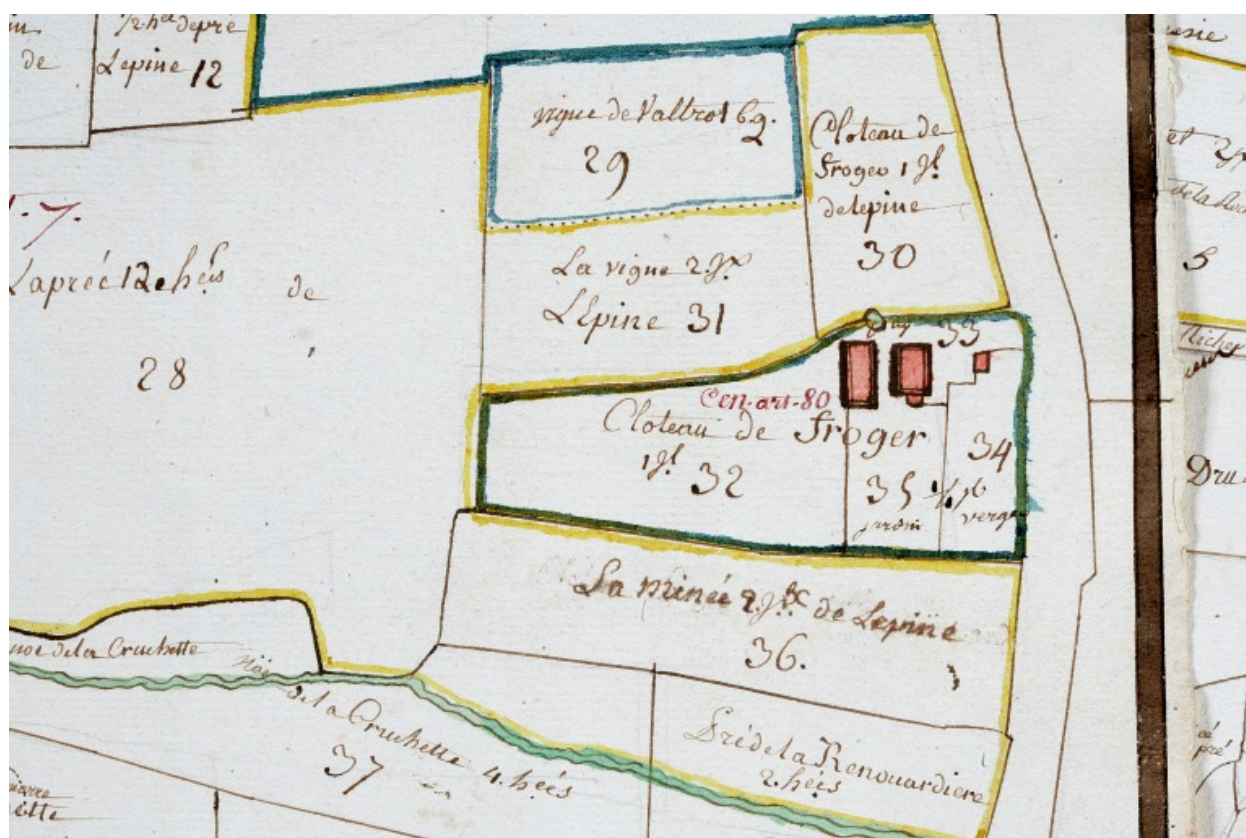 de
Lepine 12
vigne de Valtrot 69.
29
Cloteau de
Froger 1 Jl.
delepine
30
et
5
La vigne 2. Jx
LEpine 31
de
28
33
Cen. art. 80
Cloteau de Froger
1 Jl. 32
35
jardin
34
verger
Dru
La Minée 2. Jx de Lepine
36.
noe dela Cruchette
Nöe
dela Cruchette 4. hées
37
Prédela Renouardiere
2. hées
pré